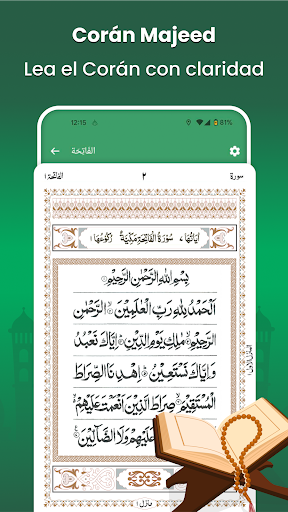 Corán Majeed
Lea el Corán con claridad
12:15
81%
الفَاتِحَة
سورة
٢
الفاتحة ١
اٰيَاتُهَا ٧
سُوْرَةُ الْفَاتِحَةِ مَكِّيَّةٌ
رُكُوْعُهَا ١
بِسْمِ اللّٰهِ الرَّحْمٰنِ الرَّحِيْمِ
اَلْحَمْدُ لِلّٰهِ رَبِّ الْعٰلَمِيْنَ ۙ الرَّحْمٰنِ
الرَّحِيْمِ ۙ مٰلِكِ يَوْمِ الدِّيْنِ ؕ اِيَّاكَ نَعْبُدُ
وَاِيَّاكَ نَسْتَعِيْنُ ؕ اِهْدِنَا الصِّرَاطَ
الْمُسْتَقِيْمَ ۙ صِرَاطَ الَّذِيْنَ اَنْعَمْتَ عَلَيْهِمْ ۙ
غَيْرِ الْمَغْضُوْبِ عَلَيْهِمْ وَلَا الضَّآلِّيْنَ